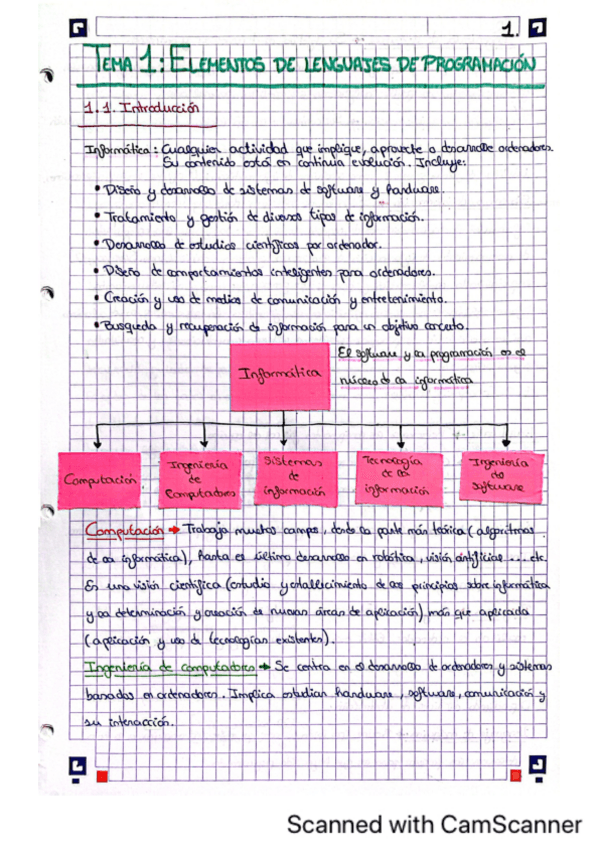 1.
TEMA 1: ELEMENTOS DE LENGUAJES DE PROGRAMACIÓN
1.1. Introducción
Informática: Cualquier actividad que implique, aproveche o desarrolle ordenadores.
Su contenido está en continua evolución. Incluye:
• Diseño y desarrollo de sistemas de software y hardware.
• Tratamiento y gestión de diversos tipos de información.
• Desarrollo de estudios científicos por ordenador.
• Diseño de comportamientos inteligentes para ordenadores.
• Creación y uso de medios de comunicación y entretenimiento.
• Busqueda y recuperación de información para un objetivo concreto.
Informática
El software y la programación es el
núcleo de la informática
Computación
Ingeniería de Computadores
Sistemas de información
Tecnología de la información
Ingeniería de software
Computación → Trabaja muchos campos, desde la parte más teórica (algoritmos
de la informática), hasta el último desarrollo en robótica, visión artificial ... etc.
Es una visión científica (estudio y establecimiento de los principios sobre informática
y la determinación y creación de nuevas áreas de aplicación) más que aplicada
(aplicación y uso de tecnologías existentes).
Ingeniería de computadores → Se centra en el desarrollo de ordenadores y sistemas
basados en ordenadores. Implica estudiar hardware, software, comunicación y
su interacción.
Scanned with CamScanner